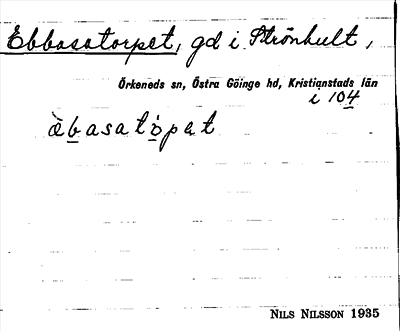 Ebbasatorpet, gd i Strönhult,
Örkeneds sn, Östra Göinge hd, Kristianstads län
i 104
àb̲asató̲pat
NILS NILSSON 1935